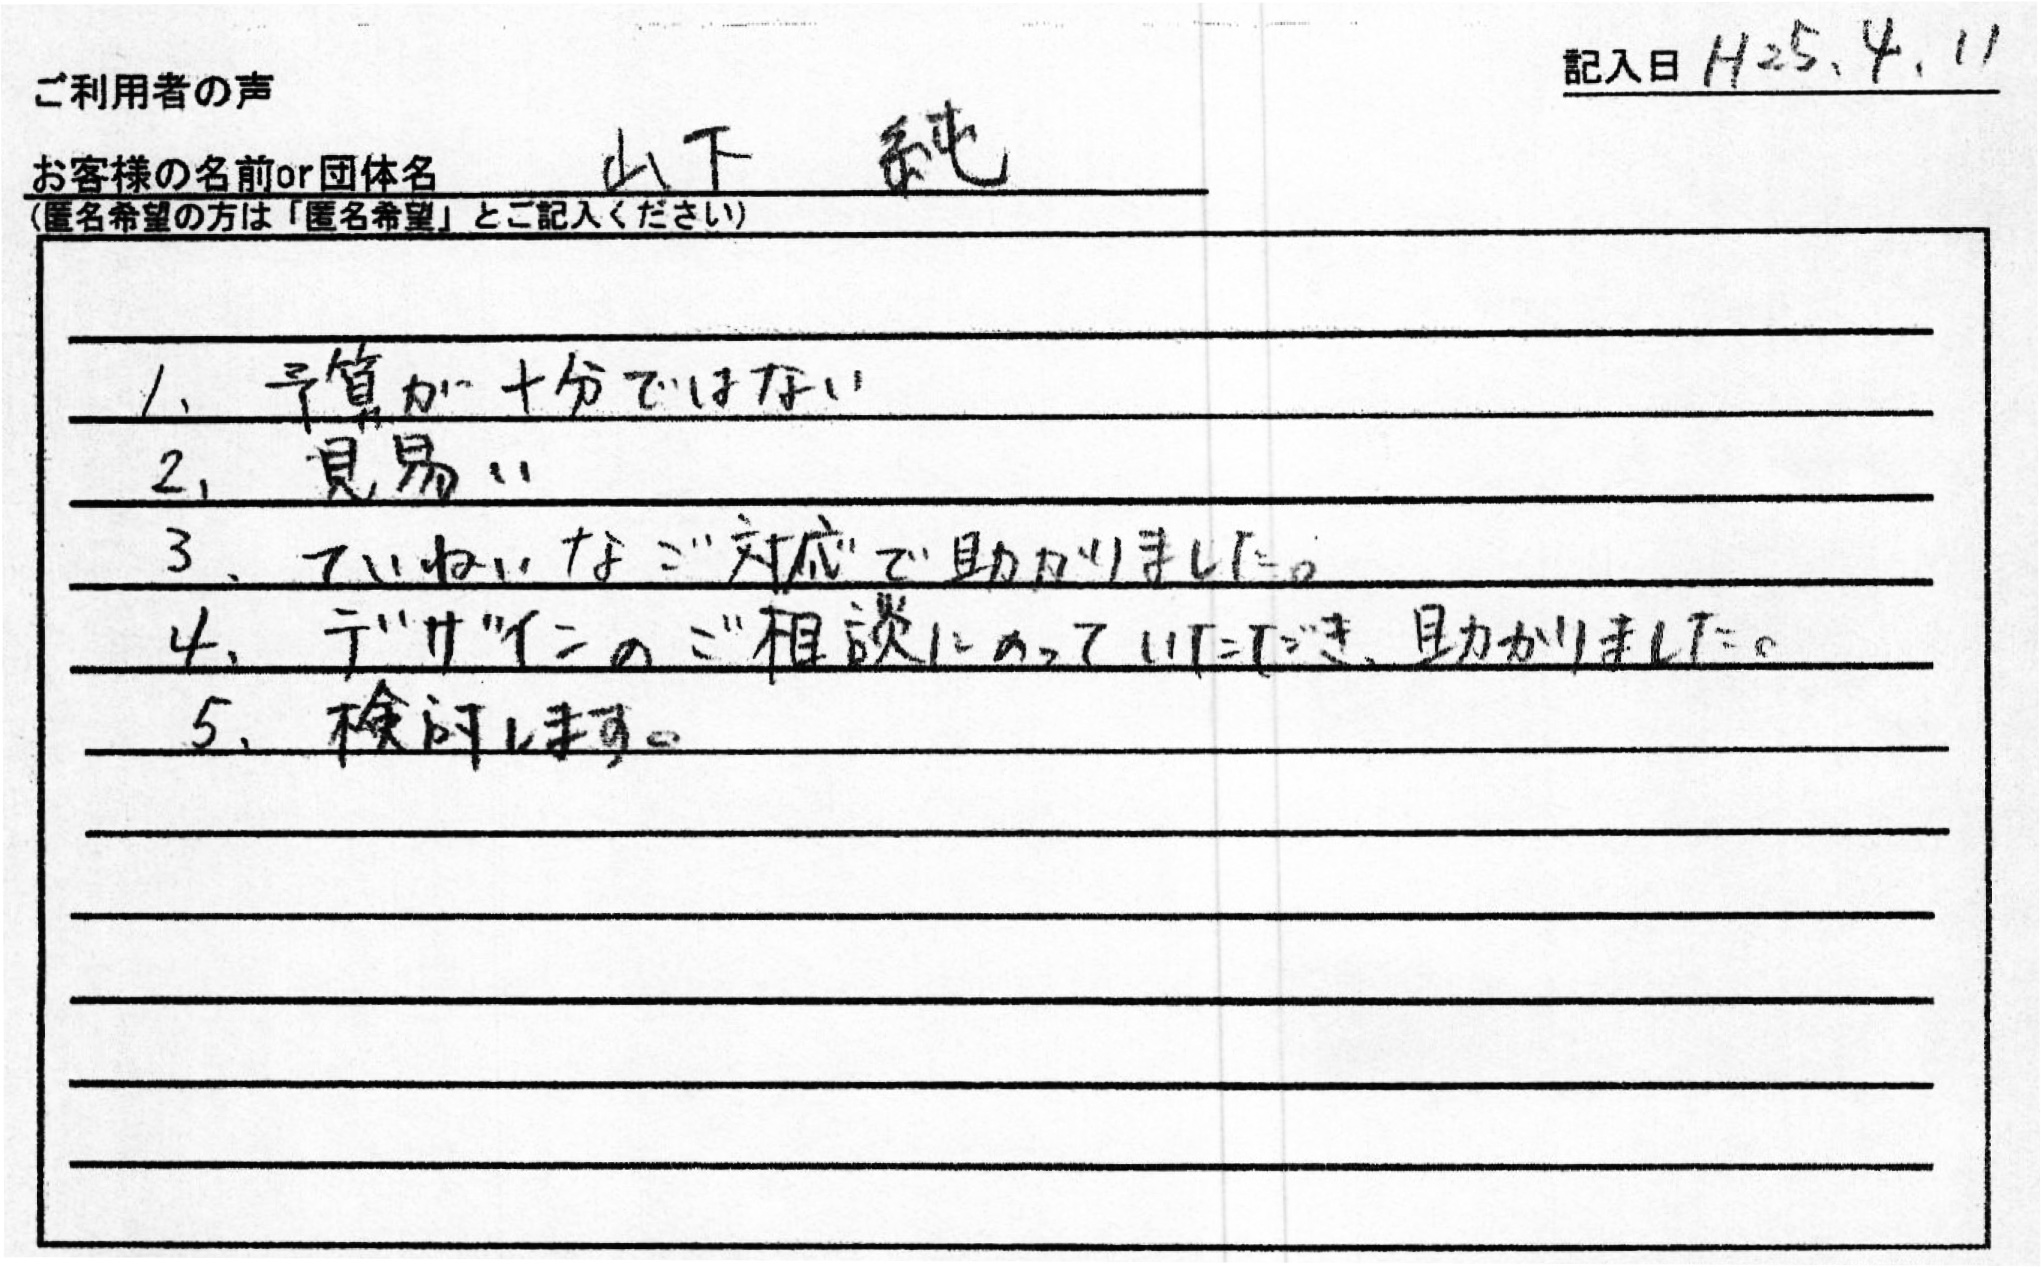 記入日 H25.4.11
ご利用者の声
お客様の名前or団体名 山下 純
(匿名希望の方は「匿名希望」とご記入ください)
1、 予算が十分ではない
2、 見易い
3、 ていねいなご対応で助かりました。
4、 デザインのご相談にのっていただき、助かりました。
5、 検討します。